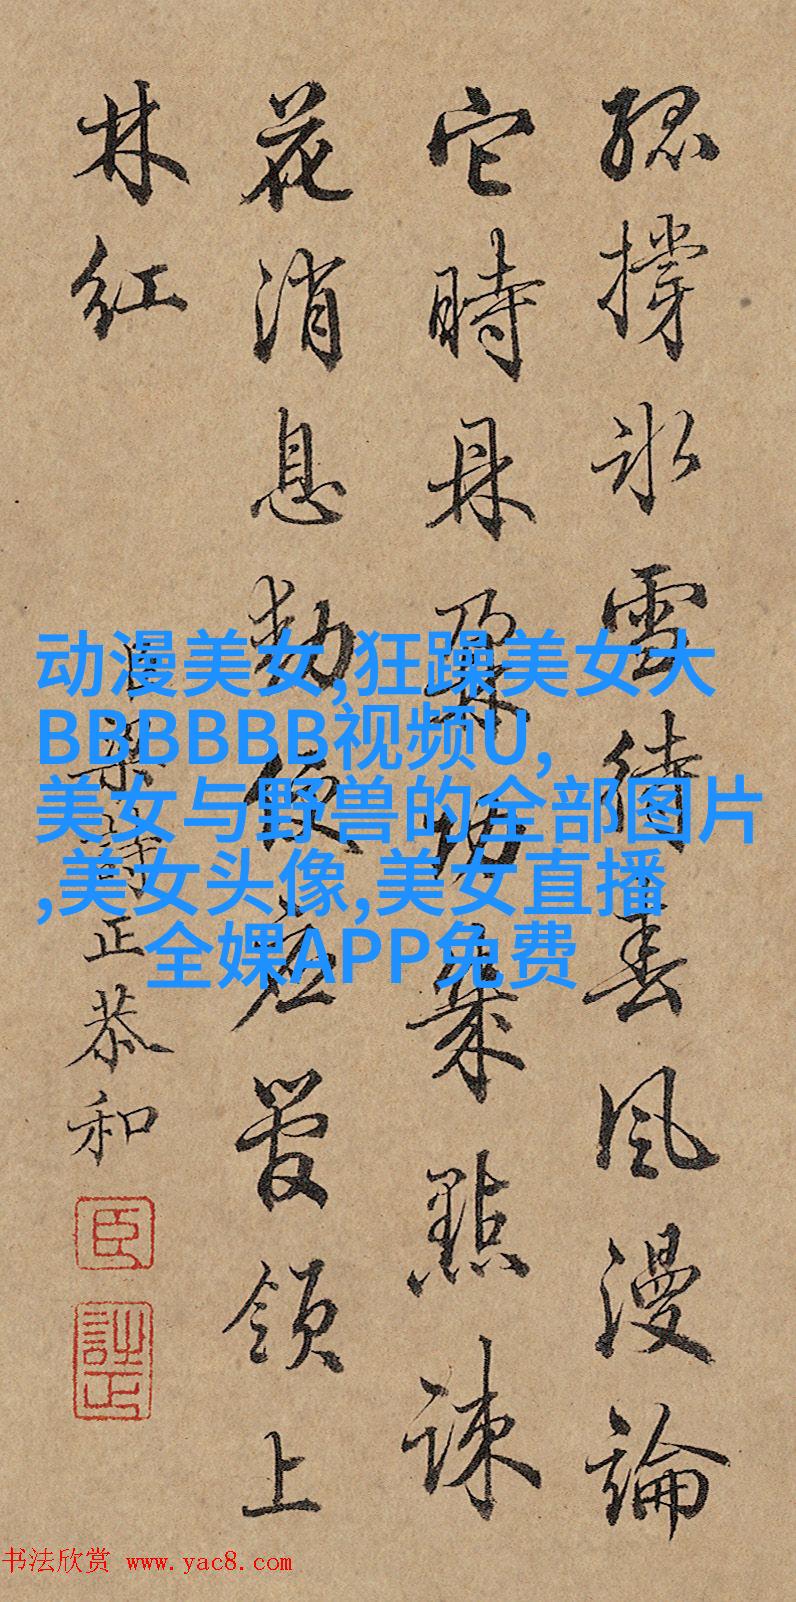 孤撐冰雪待春風漫論
它時鼎鼐功幾點疎
花消息動便應管領上
林紅
臣梁詩正恭和
臣
詩正
动漫美女,狂躁美女大
BBBBBB视频U,
美女与野兽的全部图片
,美女头像,美女直播
全婐APP免费
书法欣赏 www.yac8.com